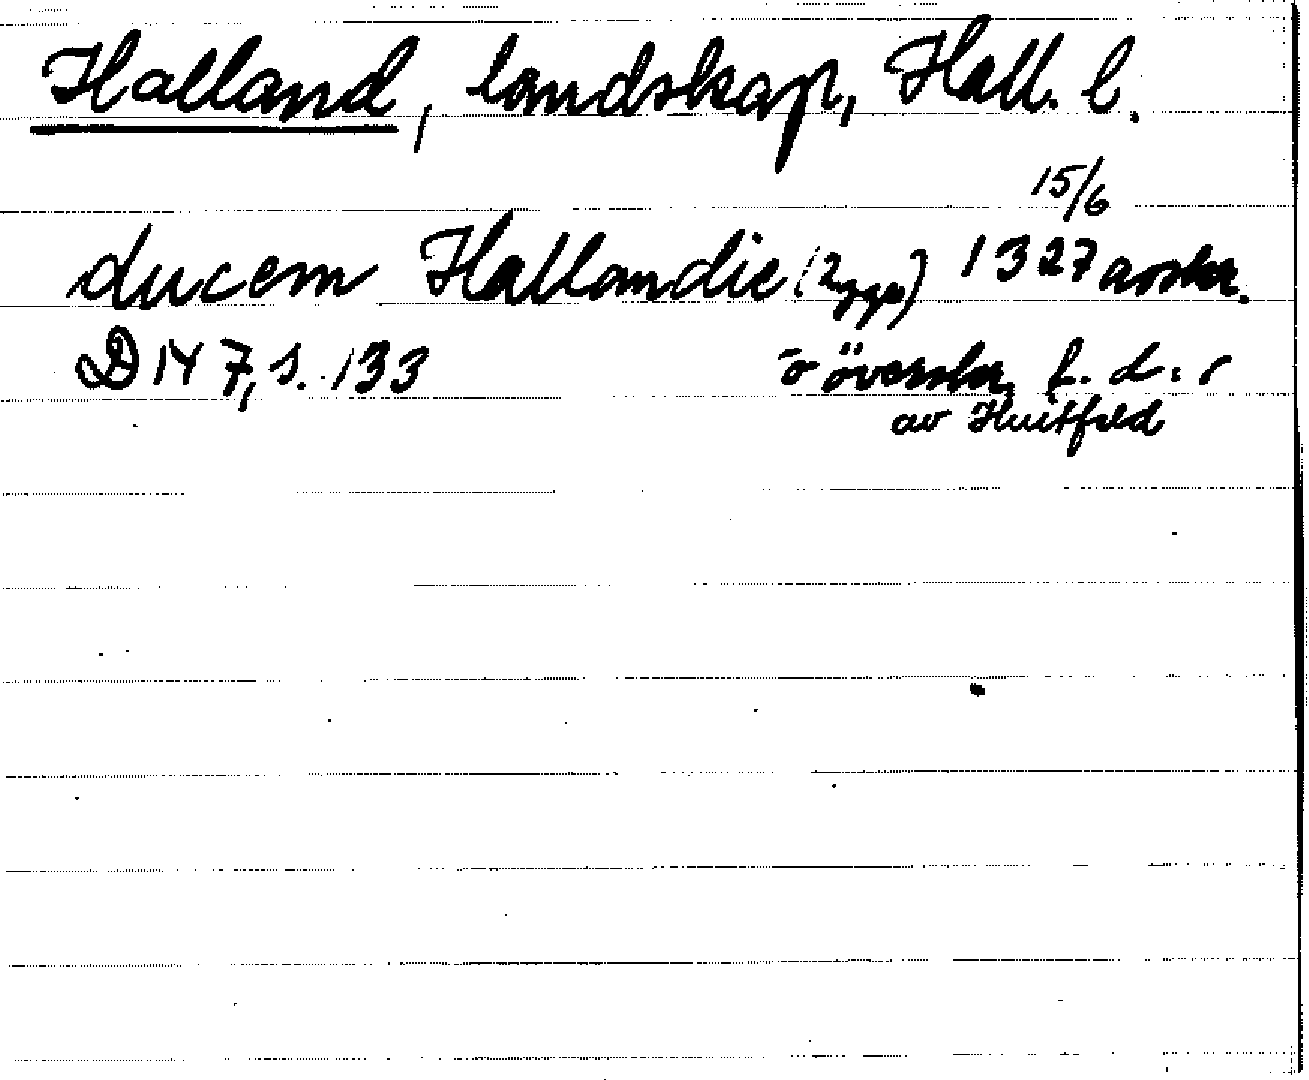 Halland, landskap, Hall. l.
15/6
ducem Hallandie (2 ggr) 1327 avskr.
D 14 7, s. 133 o överskr. f. d. r
av Huitfeld